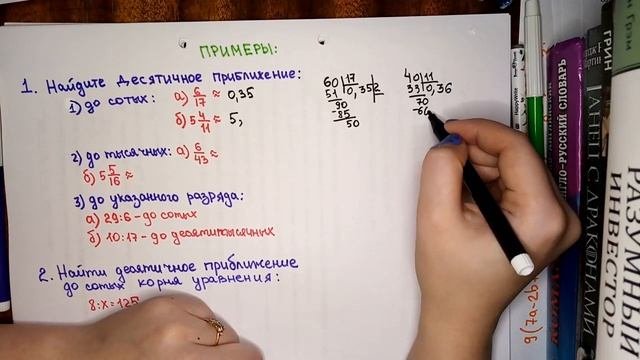 ПРИМЕРЫ:
1. Найдите десятичное приближение:
1) до сотых: а) 6/17 ≈ 0,35
б) 5 4/11 ≈ 5,
2) до тысячных: а) 6/43 ≈
б) 5 5/16 ≈
3) до указанного разряда:
а) 29:6 - до сотых
б) 10:17 - до десятитысячных
2. Найти десятичное приближение
до сотых корня уравнения:
8:x=125
60 17
51 0,35|2
90
-85
50
40 11
33 0,36
70
-66
АНГЛО-РУССКИЙ СЛОВАРЬ
ГРИН
ТАНЕЦ С ДРАКОНАМИ
РАЗУМНЫЙ
ИНВЕСТОР
9(7a-2b